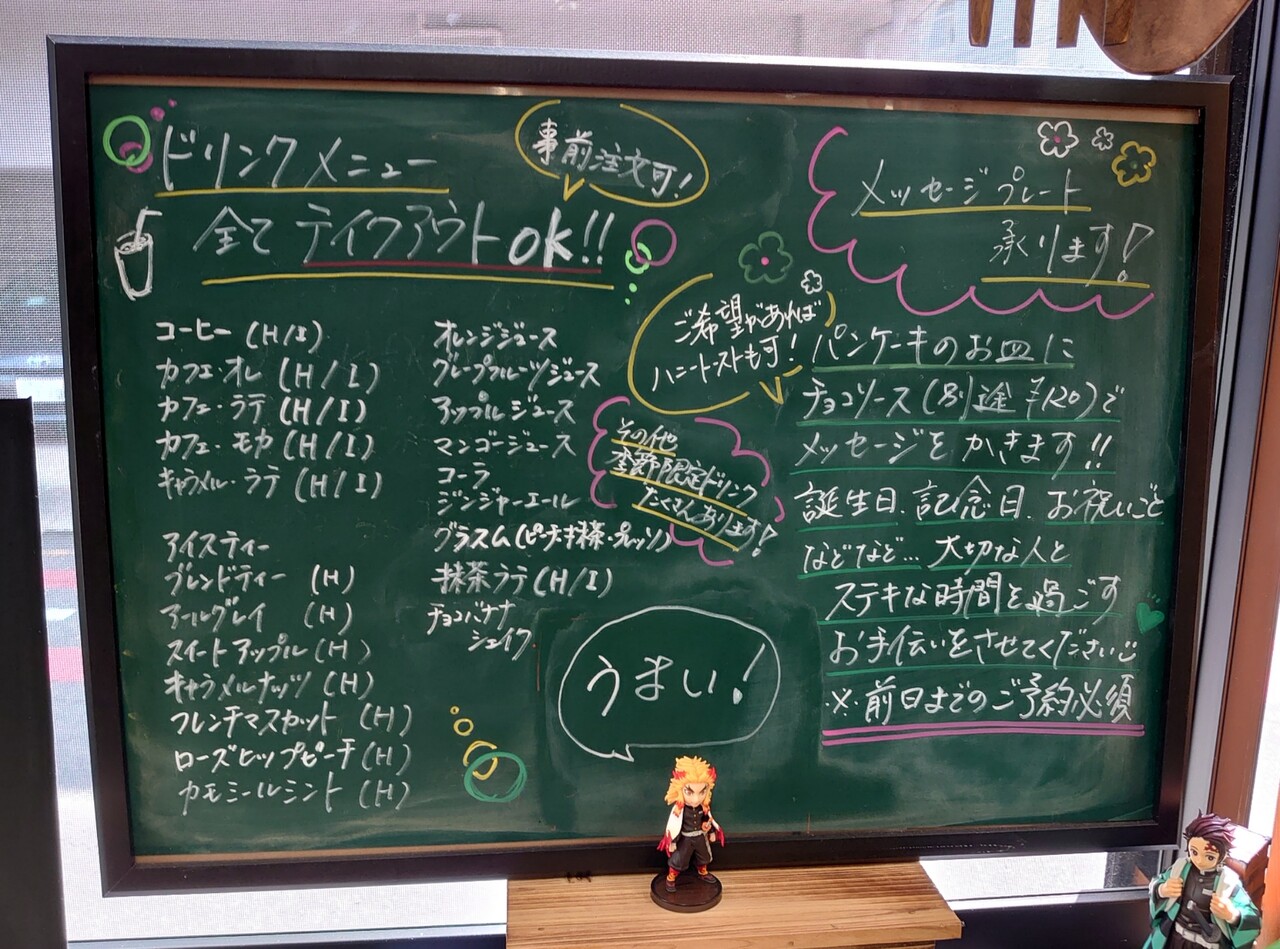 ドリンクメニュー
事前注文可!
全て テイクアウト ok!!
コーヒー (H/I)
カフェ・オレ (H/I)
カフェ・ラテ (H/I)
カフェ・モカ (H/I)
キャラメル・ラテ (H/I)
アイスティー
ブレンドティー (H)
アールグレイ (H)
スイートアップル (H)
キャラメルナッツ (H)
フレンチマスカット (H)
ローズヒップピーチ (H)
カモミールミント (H)
オレンジジュース
グレープフルーツジュース
アップルジュース
マンゴージュース
コーラ
ジンジャーエール
グラスム (ピーチ・抹茶・プレーン)
抹茶ラテ (H/I)
チョコバナナ
シェイク
その他
季節限定ドリンク
たくさんあります!
うまい!
メッセージプレート
承ります!
ご希望があれば
ハニートーストも可!
パンケーキのお皿に
チョコソース (別途¥120) で
メッセージをかきます!!
誕生日、記念日、お祝いごと
などなど... 大切な人と
ステキな時間を過ごす
お手伝いをさせてください
※前日までのご予約必須